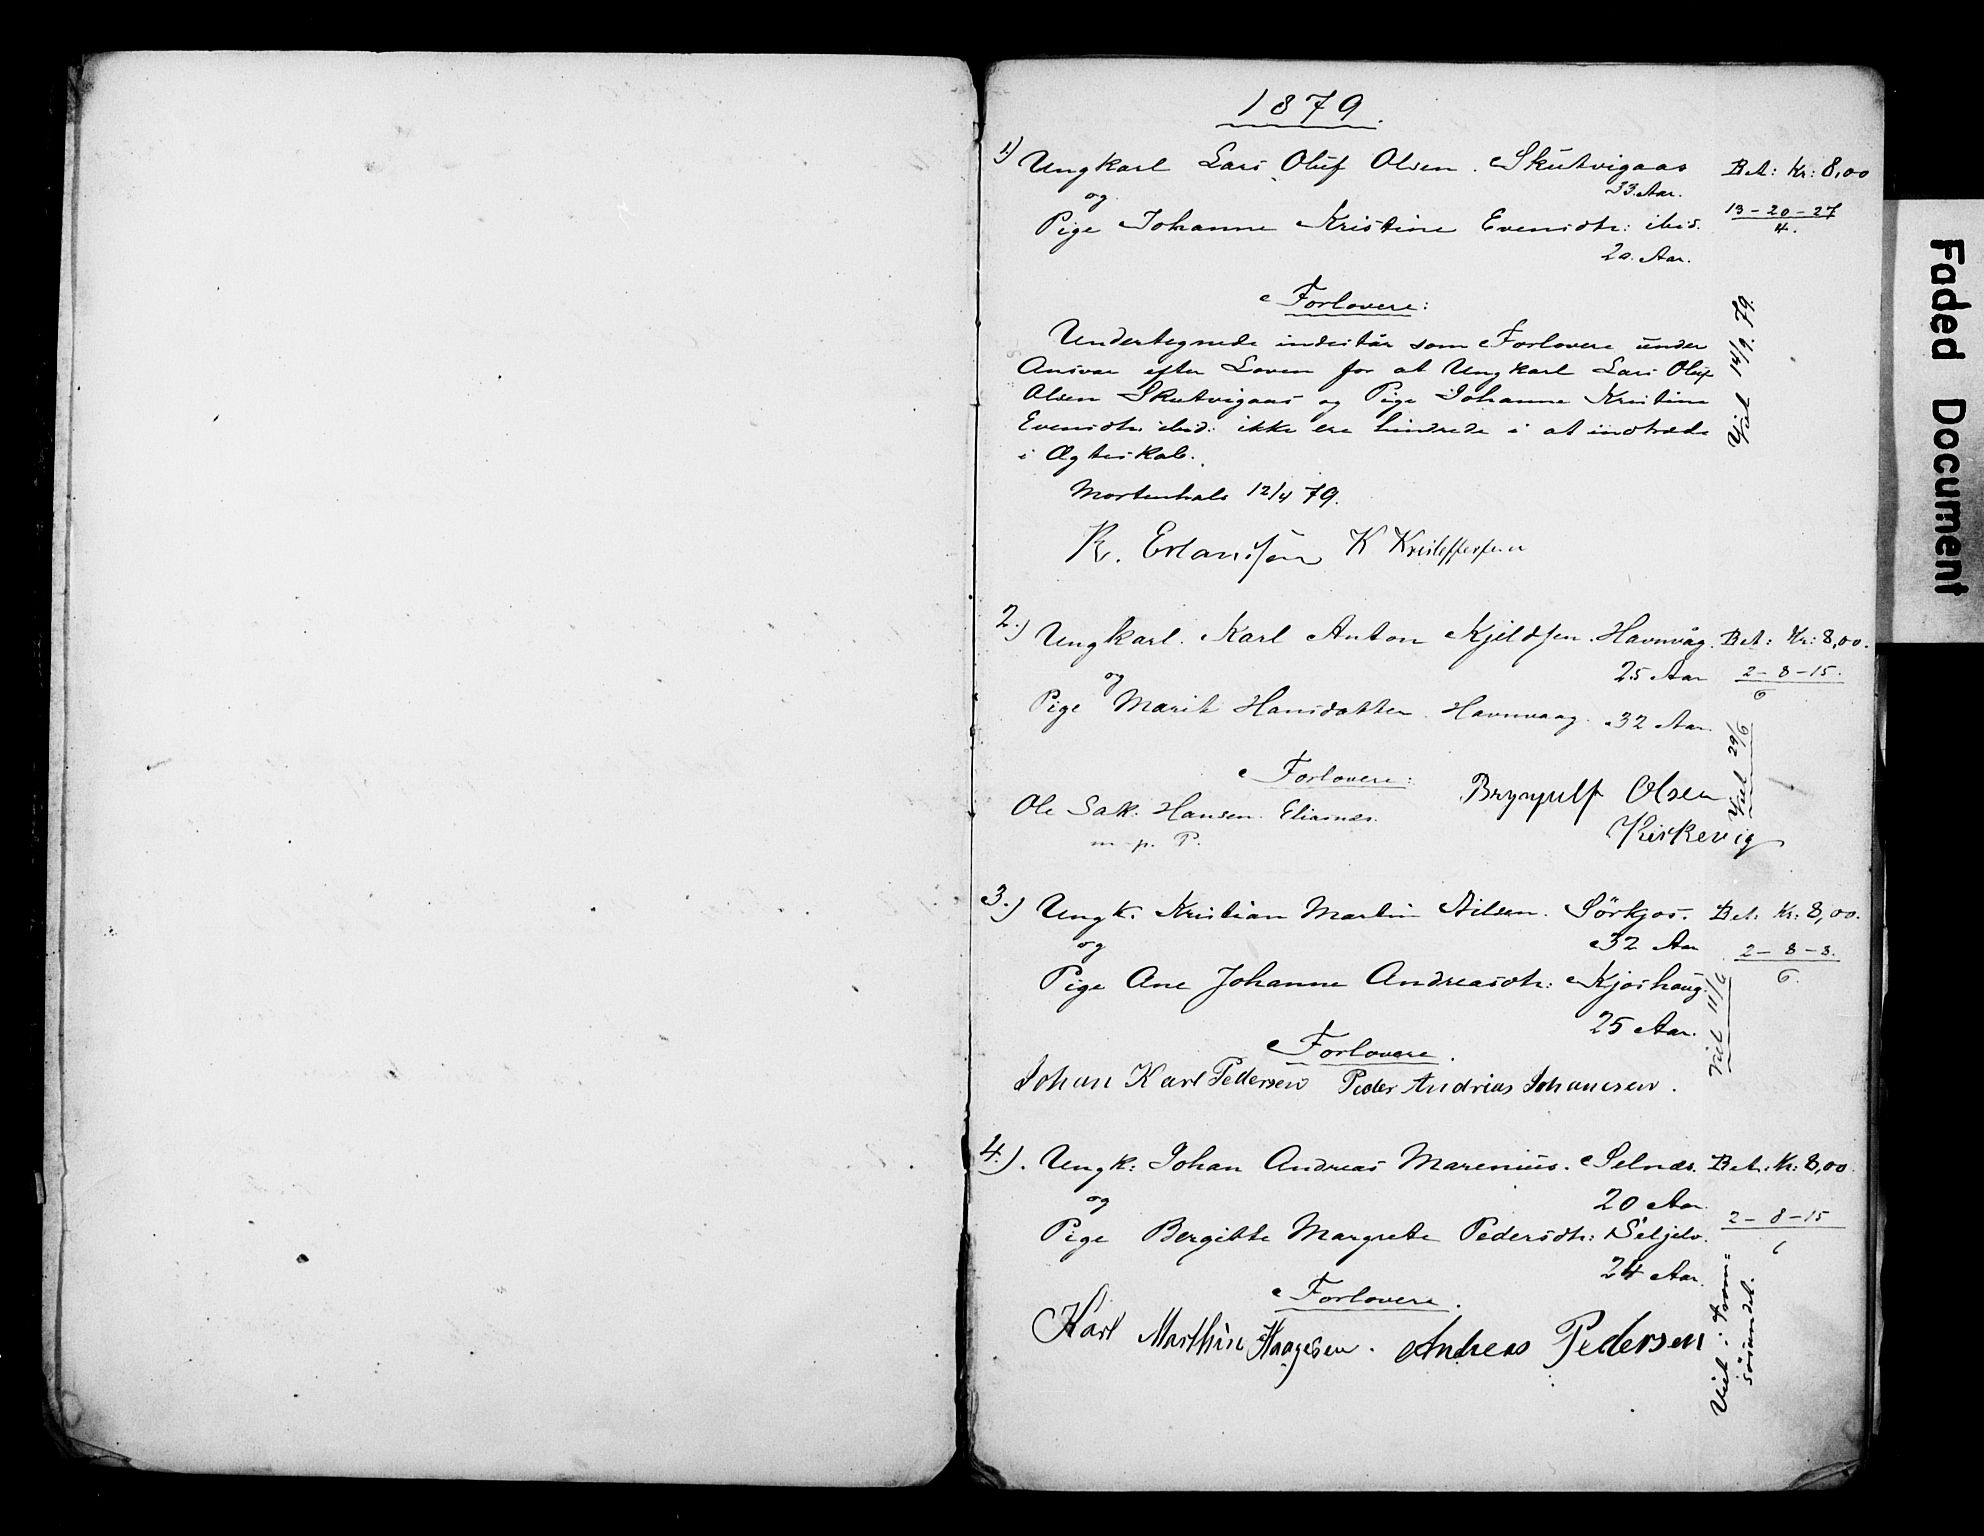 1879.
1.) Ungkarl Lars Oluf Olsen. Skutvigaas Bet: Kr: 8,00
og 33 Aar.
Pige Johanne Kristine Evensdtr: ibid. 13-20-27
4.
20. Aar.
Forlovere:
Undertegnede indestår som Forlovere under
Ansvar efter Loven for at Ungkarl Lars Oluf
Olsen Skutvigaas og Pige Johanne Kristine
Evensdtr. ibid: ikke ere hindrede i at indtræde
i Ægteskab.
Viet 14/9. 79.
Mortenhals 12/4 79.
R. Erlandsen K Kristoffersen
2.) Ungkarl. Karl Anton Kjeldsen. Havnvåg. Bet: Kr: 8,00.
og 25 Aar 2-8-15.
6
Pige Marit Hansdatter. Havnvaag. 32 Aar.
Viet 29/6
Forlovere:
Ole Sak. Hansen. Eliasnæs. Brynjulf Olsen
m. p. P. Kirkevig
3.) Ungk. Kristian Martin Nilsen. Sörkjos. Bet: Kr: 8,00.
og 32 Aar 2-8-8.
6.
Pige Ane Johanne Andreasdtr: Kjoshaug.
25 Aar.
Viet 11/6
Forlovere.
Johan Karl Pedersen Peder Andrias Johansen.
4.). Ungk: Johan Andreas Marenius. Selnæs. Bet. Kr: 8,00.
og 20 Aar
2-8-15
6
Pige Bergitte Margrete Pedersdtr: Seljelv.
24 Aar.
Viet i Trom=
sösundet.
Forlovere.
Karl Marthin Haagesen. Andreas Pedersen
Faded Document